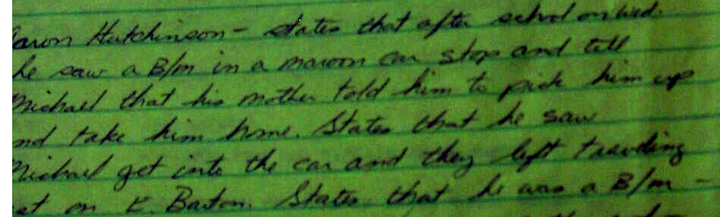 Aaron Hutchinson - states that after school on Wed.
he saw a B/m in a maroon car stop and tell
Michael that his mother told him to pick him up
and take him home. States that he saw
Michael get into the car and they left traveling
on E. Barton. States that he was a B/m -